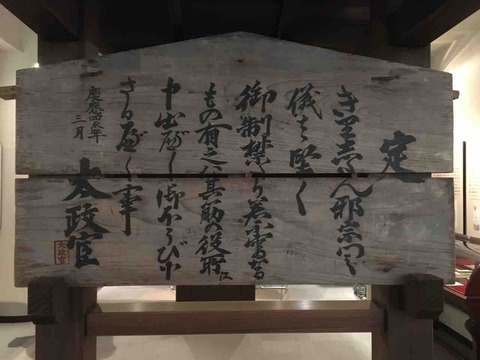 定
きりしたん邪宗門之
儀は堅く
御制禁たり若不審なる
もの有之ハ其筋の役所に
申出べし御ほうび下
さるべく事
慶應四年
三月
太政官
太政官